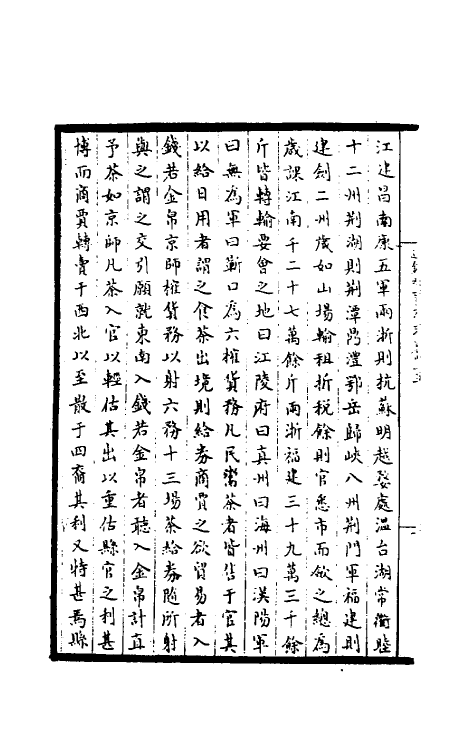 江建昌南康五軍兩浙則杭蘇明越婺處溫台湖常衢睦
十二州荆湖則荆潭鼎澧鄂岳歸峽八州荆門軍福建則
建劍二州歲如山場輸租折稅餘則官悉市而斂之總為
歲課江南千二十七萬餘斤兩浙福建三十九萬三千餘
斤皆轉輸要會之地曰江陵府曰真州曰海州曰漢陽軍
曰無為軍曰蘄口為六榷貨務凡民鬻茶者皆售于官其
以給日用者謂之食茶出境則給券商賈之欲貿易者入
錢若金帛京師榷貨務以射六務十三場茶給券隨所射
與之謂之交引願就東南入錢若金帛者聽入金帛計直
予茶如京師凡茶入官以輕估其出以重估縣官之利甚
博而商賈轉賣于西北以至散于四裔其利又特甚焉縣